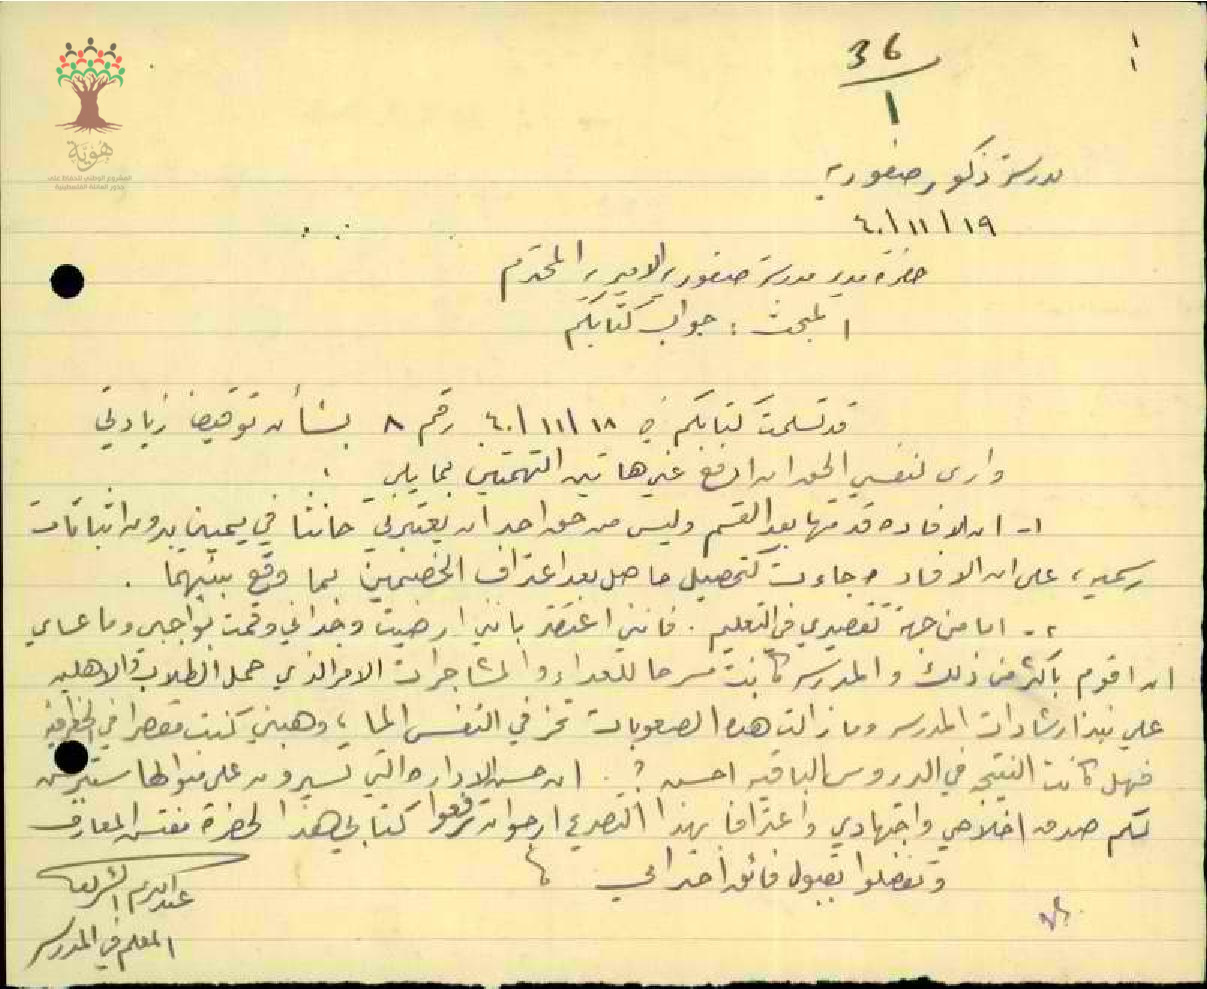 36
1
هوية
المشروع الوطني للحفاظ على
جذور العائلة الفلسطينية
مدرسة ذكور صفوريه
١٩ / ١١ / ٤٠
حضرة مدير مدرسة صفوريه الاميريه المحترم
المبحث : جواب كتابكم
قد تسلمت كتابكم في ١٨ / ١١ / ٤٠ رقم ٨ بشأن توقيف زيادتي
وارى لنفسي الحق ان ادفع عني هاتين التهمتين بما يلي :
١- ان الافاده قدمتها بعد القسم وليس من حق احد ان يعتبرني حانثا في يميني بدون اثباتات
رسميه، على ان الافاده جاءت كتحصيل حاصل بعد اعتراف الخصمين بما وقع بينهما .
٢- اما من جهة تقصيري في التعليم . فانني اعتقد بانني ارضيت وجداني وقمت بواجبي وما عساي
ان اقوم باكثر من ذلك والمدرسه كانت مسرحا للعداء والمشاجرات الامر الذي حمل الطلاب والاهلين
على نبذ ارشادات المدرسه وما زالت هذه الصعوبات تحز في النفس الما، وهبني كنت مقصرا في
فهل كانت النتيجه في الدروس الباقيه احسن ؟ . ان حسن الاداره التي تسيرون على منوالها ستبرهن
لكم صدق اخلاصي واجتهادي واعترافا بهذا التصديع ارجو ان ترفعوا كتابي هذا لحضرة مفتش المعارف
وتفضلوا بقبول فائق احترامي
عبد الكريم
المعلم في المدرسه